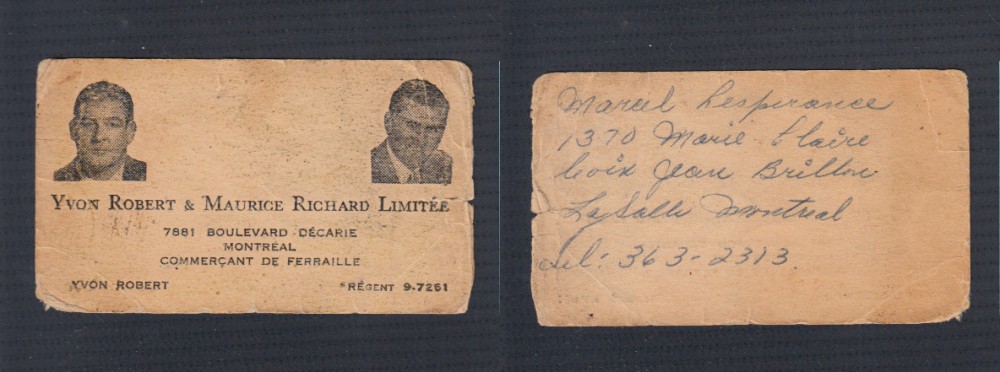 YVON ROBERT & MAURICE RICHARD LIMITÉE
7881 BOULEVARD DÉCARIE
MONTRÉAL
COMMERÇANT DE FERRAILLE
YVON ROBERT
RÉGENT 9-7261
Marcel Lesperance
1370 Marie Claire
Coix Jean Brillon
LaSalle Montreal
tel: 363-2313